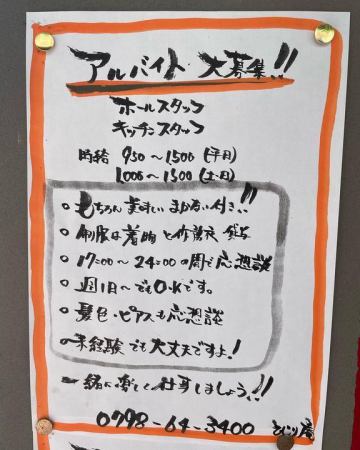 アルバイト 大募集!!
ホールスタッフ
キッチンスタッフ
時給 950～1500 (平日)
1000～1500 (土・日)
○ もちろん美味しいまかない付き!!
○ 制服は着物と作務衣 貸与
○ 17:00～24:00の間で応相談
○ 週1日～でもO.Kです。
○ 髪色・ピアスも応相談
○ 未経験でも大丈夫ですよ!
一緒に楽しく仕事しましょう!!
0798-64-3400